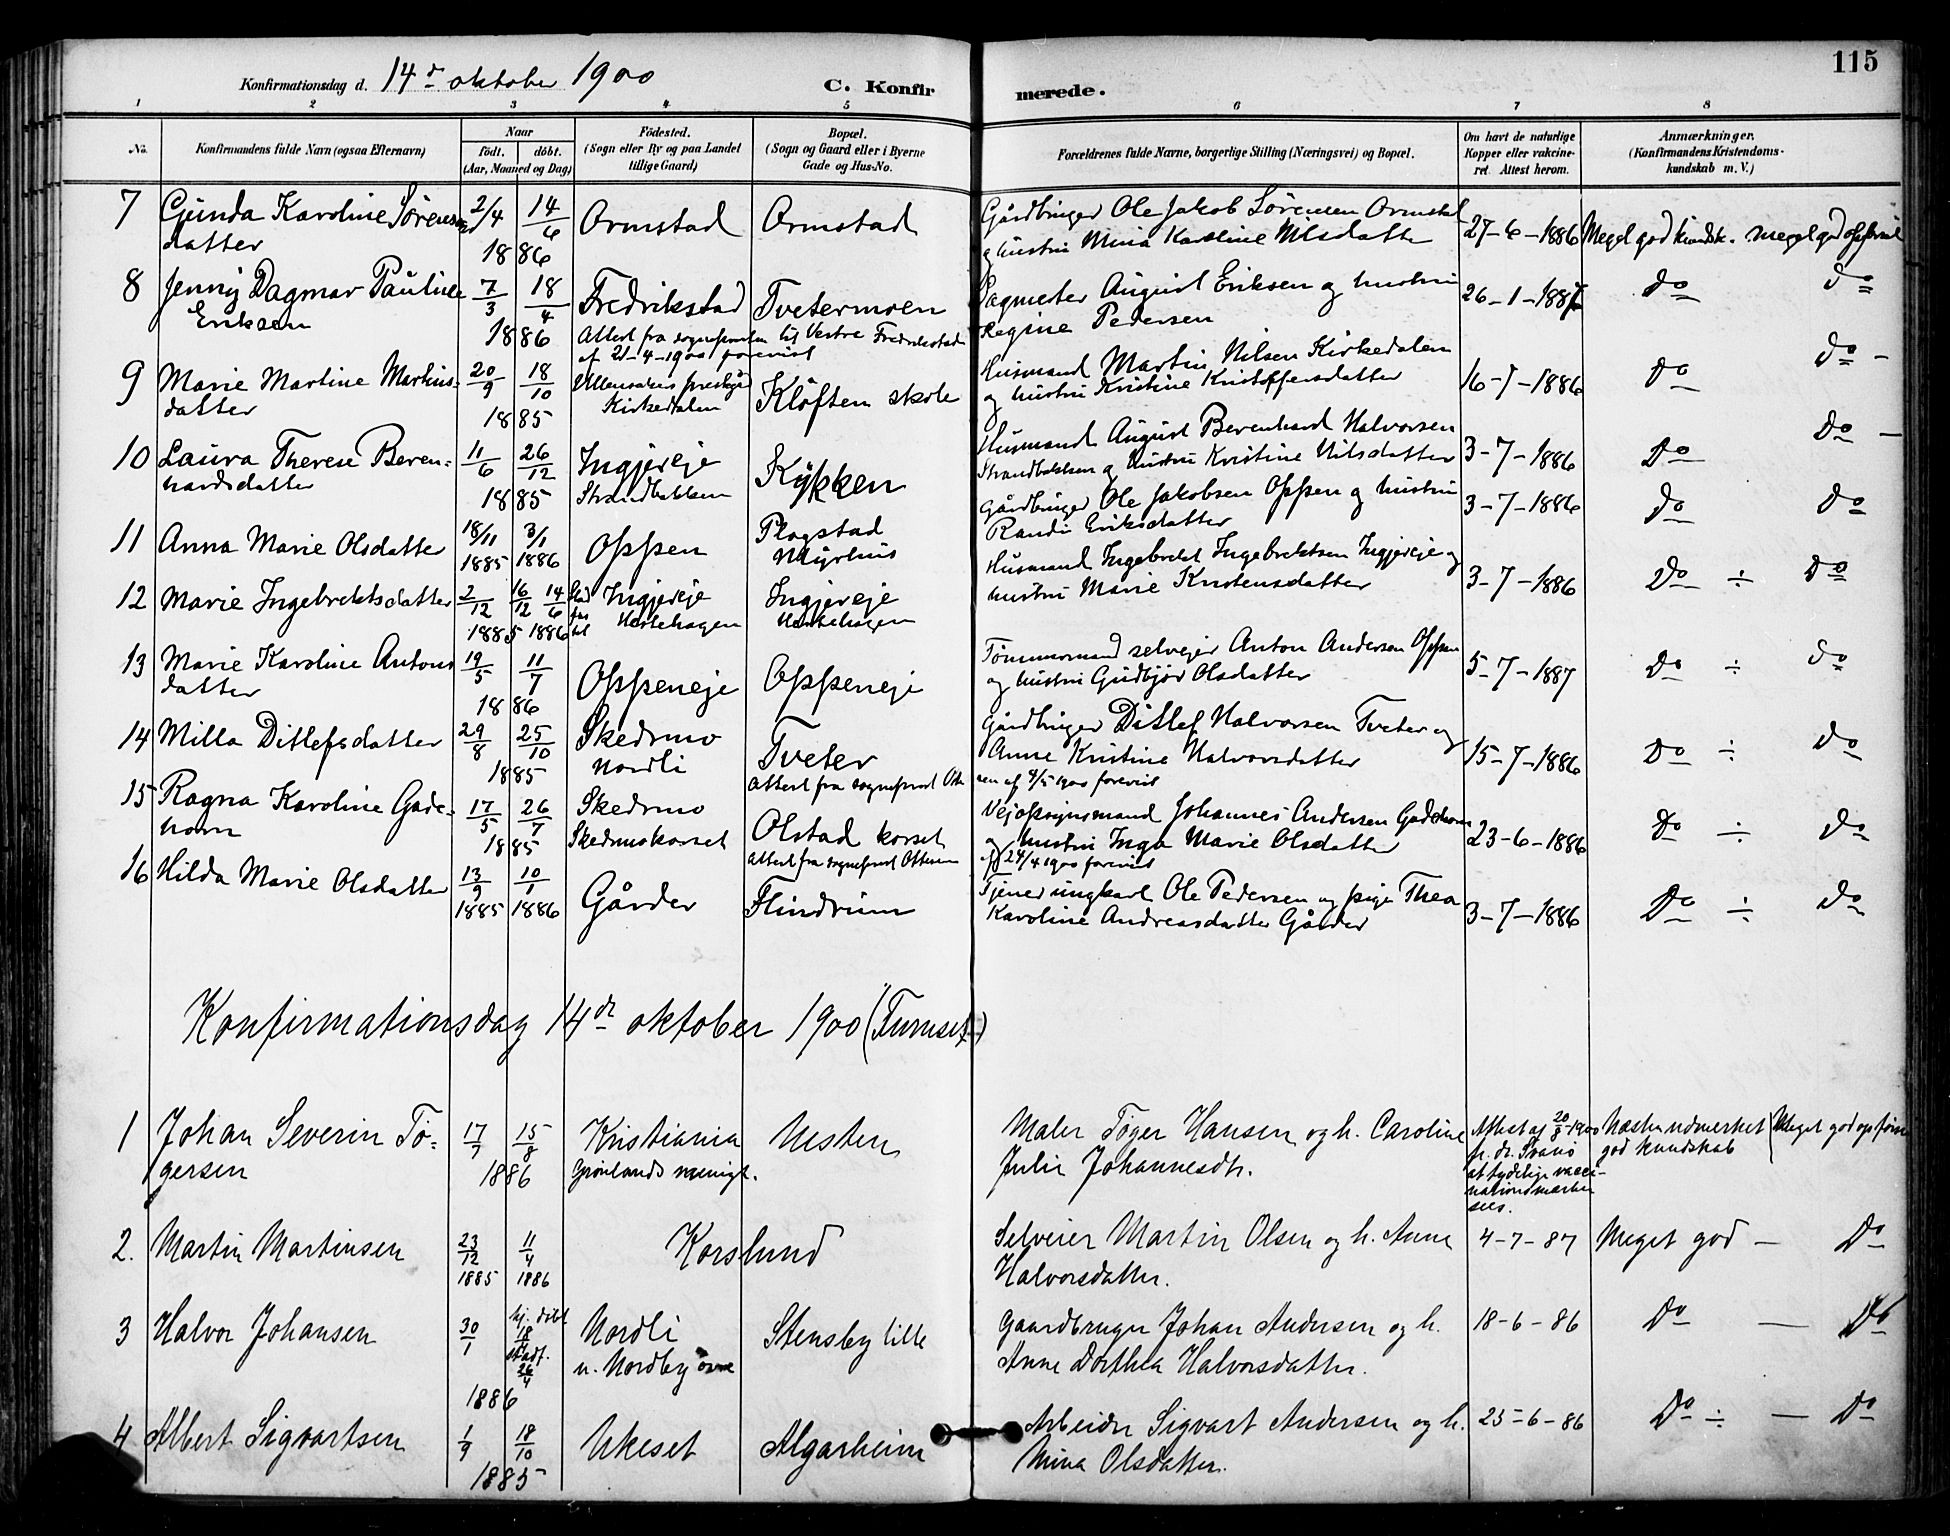 115
Konfirmationsdag d. 14de oktober 1900
C. Konfirmerede.
1 2 3 4 5 6 7 8
No. Konfirmandens fulde Navn (ogsaa Efternavn) Naar født. døbt. (Aar, Maaned og Dag) Fødested. (Sogn eller By og paa Landet tillige Gaard) Bopæl. (Sogn og Gaard eller i Byerne Gade og Hus-No. Forældrenes fulde Navne, borgerlige Stilling (Næringsvei) og Bopæl. Om havt de naturlige Kopper eller vakcineret. Attest herom. Anmærkninger. (Konfirmandens Kristendomskundskab m. V.)
7 Gunda Karoline Sørens datter 2/4 14/6 1886 Ormstad Ormstad Gårdbruger Ole Jakob Sørensen Ormstad
og hustru Mina Karoline Olsdatter 27-6-1886 Meget god kundsk. meget god opførsel
8 Jenny Dagmar Pauline Eriksen 7/3 18/4 1886 Fredrikstad Tvetermoen
Attest fra sognepresten til Vestre Fredrikstad af 21-4-1900 forevist
Sagmester August Eriksen og hustru
Regine Pedersen 26-1-1887 Do Do
9 Marie Martine Martins=datter 20/9 18/10 1885 Ullensakers prestegård Kirkedalen Kløften skole
Husmand Martin Nilsen Kirkedalen
og hustru Kristine Kristoffersdatter 16-7-1886 Do Do
10 Laura Therese Beren=hardsdatter 11/6 26/12 1885 Ingjereje Strandbakken Kykken
Husmand August Berenhard Halvorsen
Strandbakken og hustru Kristine Nilsdatter 3-7-1886 Do Do
11 Anna Marie Olsdatter 18/11 1885 3/1 1886 Oppen Flogstad Myrhus
Gårdbruger Ole Jakobsen Oppen og hustru
Randi Eriksdatter 3-7-1886 Do Do
12 Marie Ingebretsdatter 2/12 16/12 14/6 1885 1886 Ingjereje Hestehagen Ingjereje Hestehagen
Husmand Ingebret Ingebretsen Ingjereje og
hustru Marie Kristensdatter 3-7-1886 Do ÷ Do
13 Marie Karoline Antons datter 19/5 11/7 1886 Oppeneje Oppeneje
Tømmermand selvejer Anton Andersen Oppen
og hustru Gudbjør Olsdatter 5-7-1887 Do ÷ Do
14 Milla Ditlefsdatter 29/8 25/10 1885 Skedsmo Nordli Tveter
Gårdbruger Ditlef Halvorsen Tveter og
Anne Kristine Halvorsdatter 15-7-1886 Do ÷ Do
Attest fra sogneprest Ottesen af 4/5 1900 forevist
15 Ragna Karoline Gade=horn 17/5 26/7 1885 Skedsmo Skedsmokorset Olstad korset
Vejopsynsmand Johannes Andersen Gadehorn
og hustru Inga Marie Olsdatter 23-6-1886 Do ÷ Do
Attest fra sogneprest Ottesen af 24/4 1900 forevist
16 Hilda Marie Olsdatter 13/9 1885 10/1 1886 Gårder Flindrum
Tjener ungkarl Ole Pedersen og pige Thea
Karoline Andreasdatter Gårder 3-7-1886 Do ÷ Do
Konfirmationsdag 14de oktober 1900 (Furuset)
1 Johan Severin Tø=gersen 17/7 15/8 1886 Kristiania Grønlands menigh. Nesten
Maler Tøger Hansen og h. Caroline
Julie Johannesdt. Attest af 20/8 1900 fr. dr. Svanø at tydelige vaccinationsmærker sees.
Næsten udmerket god kundskab Meget god opførsel
2. Martin Martinsen 23/12 1885 11/4 1886 Korslund
Selveier Martin Olsen og h. Anne
Halvorsdatter. 4-7-87 Meget god — Do
3 Halvor Johansen 30/1 hj. døbt 18/ stadf. 26/4 1886 Nordli u. Nordby øvre Stensby lille
Gaardbruger Johan Andersen og h.
Anne Dorthea Halvorsdatter. 18-6-86 Do — Do
4 Albert Sigvartsen 1/9 18/10 1885 Ukeset Algarheim
Arbeider Sigvart Andersen og h.
Mina Olsdatter. 25-6-86 Do ÷ — Do